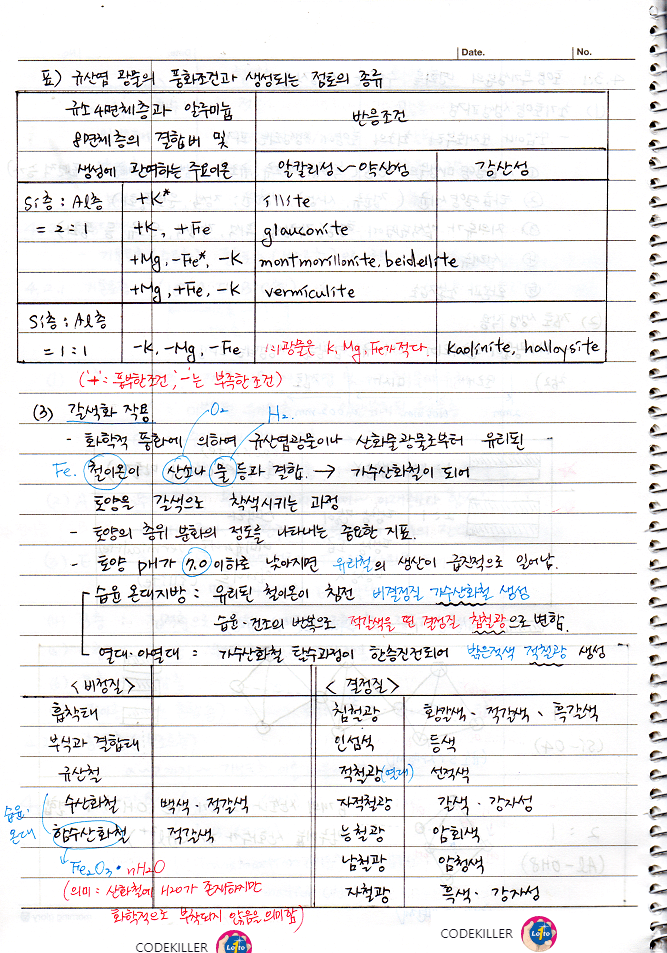 Date. No.
표) 규산염 광물의 풍화조건과 생성되는 점토의 종류
규소4면체층과 알루미늄 8면체층의 결합비 및 생성에 관여하는 주요이온
반응조건
알칼리성~약산성 강산성
Si층 : Al층 +K* illite
= 2 : 1 +K, +Fe glauconite
+Mg, -Fe*, -K montmorillonite, beidellite
+Mg, +Fe, -K vermiculite
Si층 : Al층
= 1 : 1 -K, -Mg, -Fe 1:1광물은 K, Mg, Fe가 적다 Kaolinite, halloysite
('+': 풍부한조건, '-'는 부족한조건)
(3) 갈색화 작용 O₂ H₂.
- 화학적 풍화에 의하여 규산염광물이나 산화물광물로부터 유리된
Fe. 철이온이 산소나 물 등과 결합. → 가수산화철이 되어
토양을 갈색으로 착색시키는 과정
- 토양의 층위 분화의 정도를 나타내는 중요한 지표.
- 토양 pH가 7.0 이하로 낮아지면 유리철의 생산이 급진적으로 일어남.
습윤 온대지방 : 유리된 철이온이 침전 비결정질 가수산화철 생성
습윤·건조의 반복으로 적갈색을 띤 결정질 침철광으로 변함.
열대·아열대 : 가수산화철 탈수과정이 한층진전되어 밝은적색 적철광 생성
<비정질> <결정질>
흡착태 침철광 황갈색·적갈색、흑갈색
부식과 결합태 인섬석 등색
규산철 적철광(열대) 선적색
습윤·온대 수산화철 백색·적갈색 자적철광 갈색·강자성
함수산화철 적갈색 능철광 암회색
Fe₂O₃·nH₂O 남철광 암청색
(의미 : 산화철에 H₂O가 존재하지만 자철광 흑색·강자성
화학적으로 부착되지 않음을 의미함)
CODEKILLER Lotto CODEKILLER Lotto